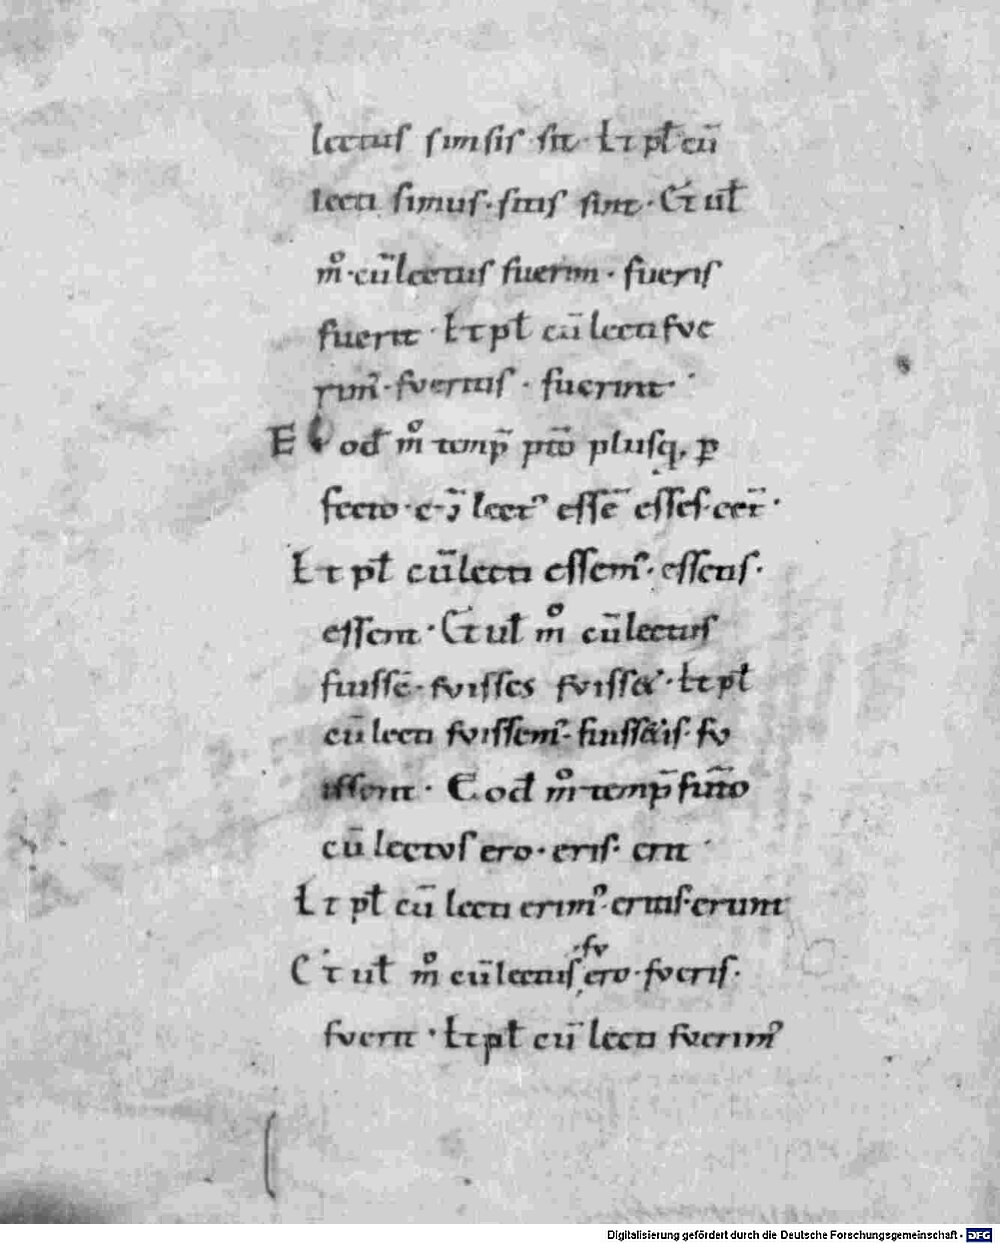 lectus sim sis · sit · Et pł cū
lecti simus · sitis sint · Et uł
m̊ · cū lectus fuerim · fueris
fuerit · Et pł cū lecti fue
rim᷒ · fueritis · fuerint ·
Eod m̊ temp̄ p̄to plusq, ꝑ
fecto · lect᷒ essē esses · eet̄ ·
Et pł cū lecti essem᷒ · essetis ·
essent · Et uł m̊ cū lectus
fuissē · fuisses fuiss& · Et pł
cū lecti fuissem᷒ · fuiss&is · fu
issent · Eod m̊ temp̄ fut̄o
cū lectus ero · eris · erit ·
Et pł cū lecti erim᷒ · eritis · erunt
Et uł m̊ cū lectus fu ero · fueris ·
fuerit · Et pł cū lecti fuerim᷒
Digitalisierung gefördert durch die Deutsche Forschungsgemeinschaft - DFG